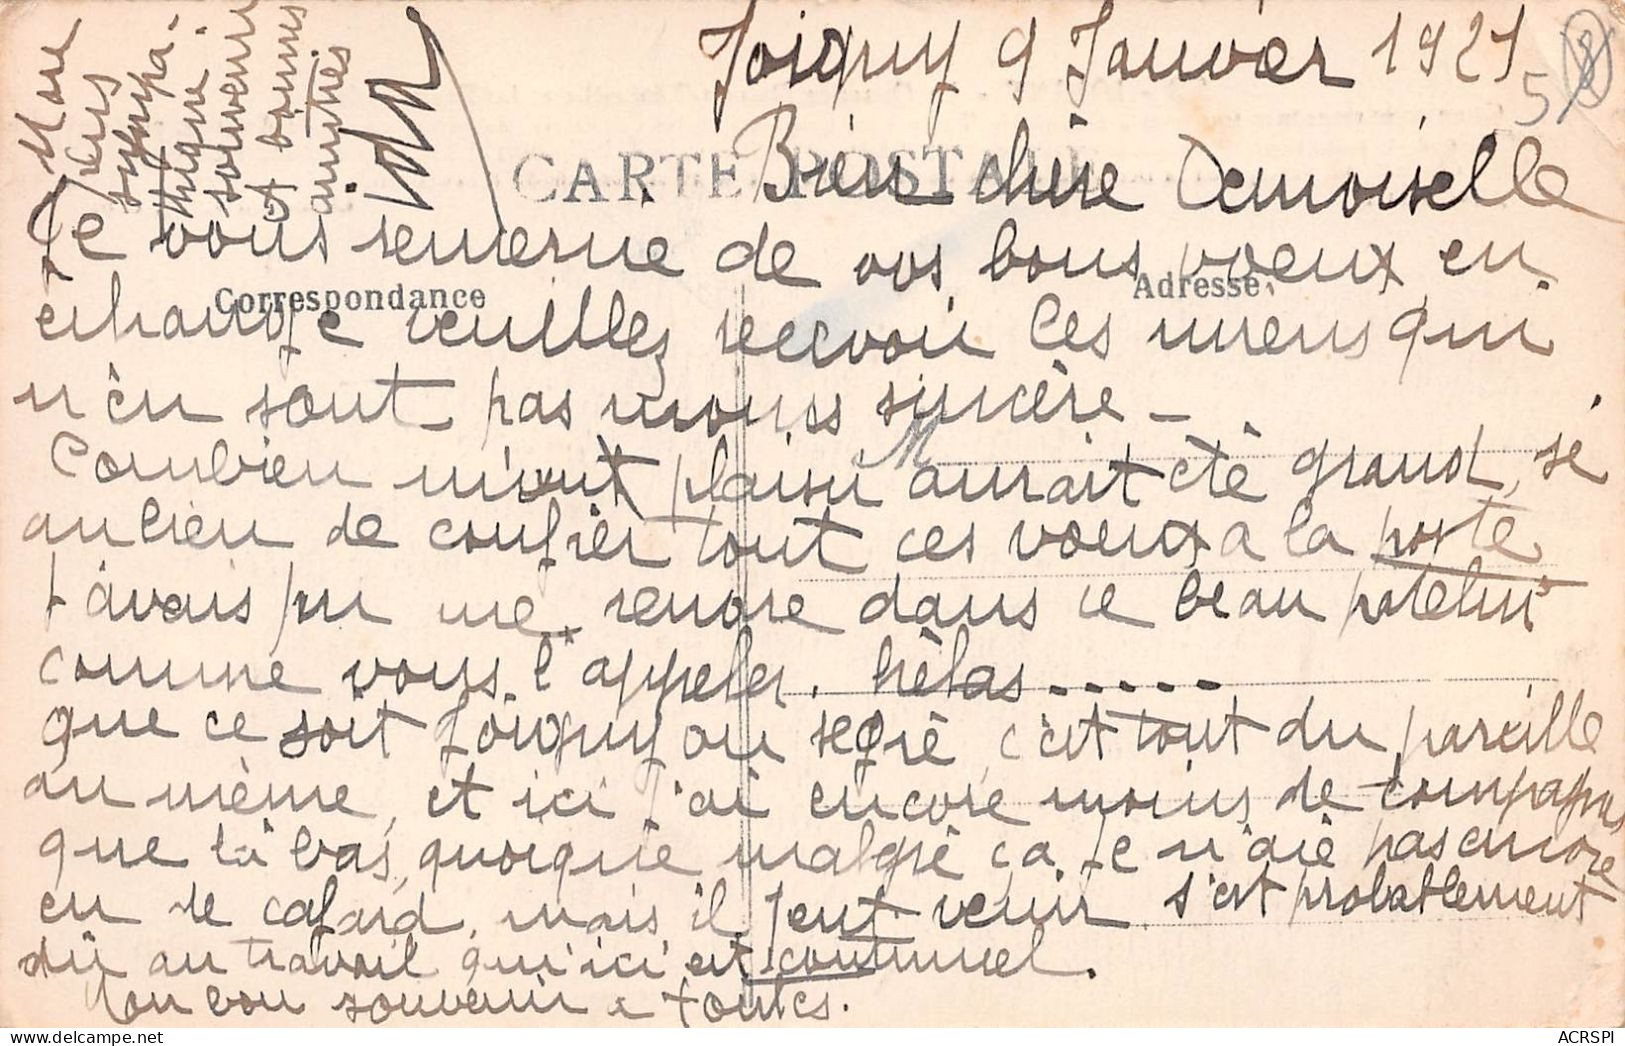 Joigny 9 Janvier 1921
5
CARTE POSTALE
Bien chère Demoiselle
Je vous remercie de vos bons voeux en
Correspondance
Adresse
échange veuillez recevoir les miens qui
n'en sont pas moins sincère -
Combien mon plaisir aurait été grand, si
au lieu de confier tout ces voeux a la poste
j'avais pu me rendre dans ce beau patelin
comme vous l'appelez. hélas.....
que ce soit Joigny ou Segré, c'est tout du pareille
au même, et ici j'ai encore moins de
que là bas, quoique malgré ça je n'aie pas encore
eu le cafard, mais il peut venir, s'est probablement
dû au travail qu'ici est continuel.
Mon bon souvenir a toutes.
sympa-
thique
souvenir
& bonnes
amitiés
ACRSPI